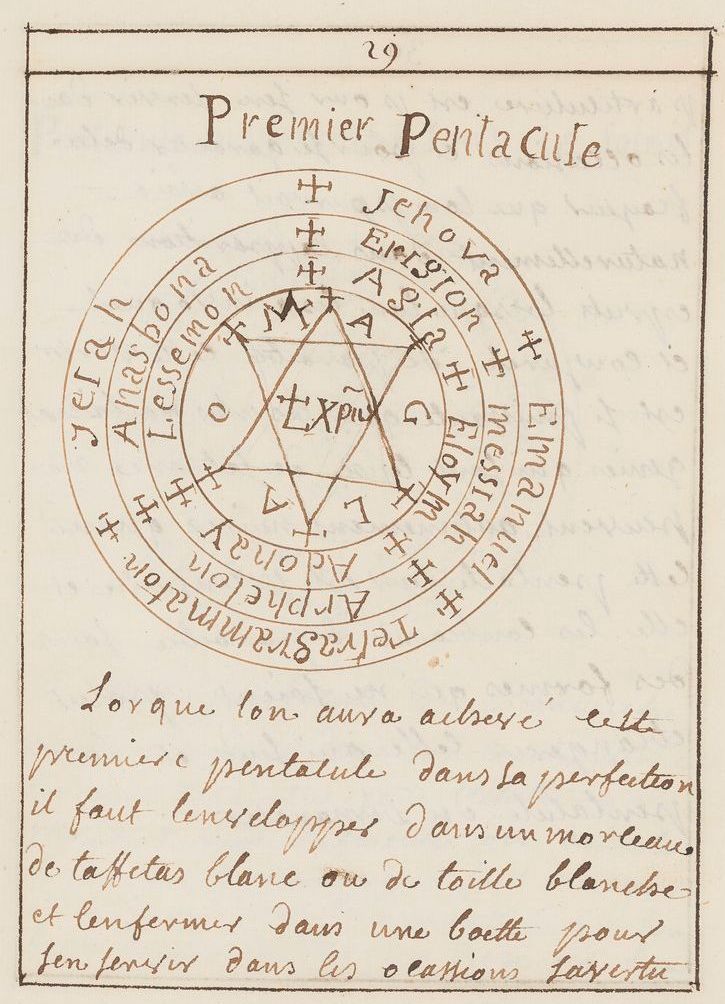 29
Premier Pentacule
✝ Jehova ✝ Emanuel ✝ Tetragrammaton ✝ Jerah
✝ Erigion ✝ messiah ✝ Arphelon ✝ Anasbona
✝ Agla ✝ Eloym ✝ Adonay ✝ Lessemon
A G L A O M
✝ Xp̃us
Lorque lon aura acheré cette
premiere pentacule dans sa perfection
il faut lenvelopper dans un morceau
de taffetas blanc ou de toille blanche
et lenfermer dans une boette pour
sen servir dans les ocassions sa vertu